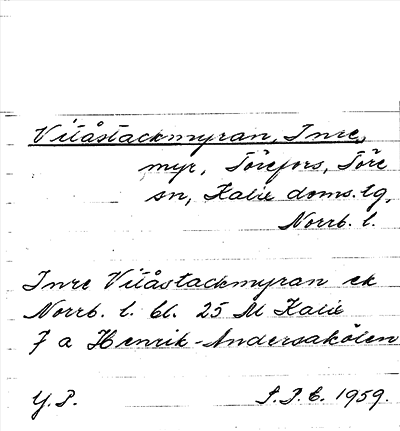 Vitåstackmyran, Inre,
myr, Törefors, Töre
sn, Kalix doms.lg,
Norrb. l.
Inre Vitåstackmyran ek
Norrb. l. bl. 25 M Kalix
f a Henrik-Andersakölen
Y.P. S.P.E. 1959.